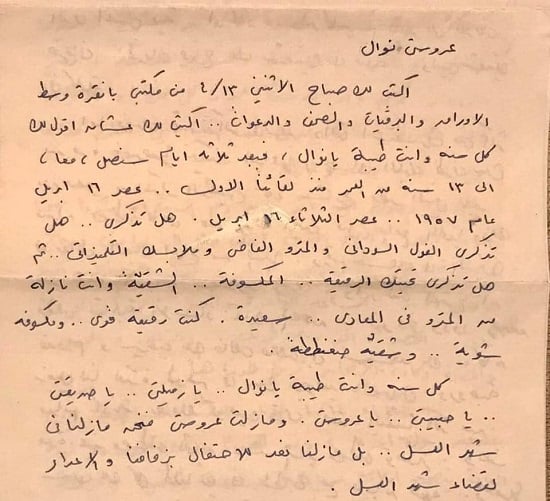 عروستى نوال
اكتب لك صباح الاثنين ٤/١٣ من مكتبى بانقرة وسط
الاوراق والبرقيات والصحف والدعوات .. اكتب لك عشان اقول لك
كل سنه وانت طيبة يا نوال ، فبعد ثلاثة ايام سنصل ، معا ،
الى ١٣ سنه من العمر منذ لقائنا الاول .. عصر ١٦ ابريل
عام ١٩٥٧ .. عصر الثلاثاء ١٦ ابريل . هل تذكرى .. هل
تذكرى الفول السودانى والمترو الفاضى وملابسك التلميذاتى .. ثم
هل تذكرى تحيتك الرقيقة .. المكسوفة .. الشقيّة وانت نازلة
من المترو فى المعادى .. سعيدة . كنت رقيقة قوى .. ومكسوفه
شوية .. وشقيّه
كل سنه وانت طيبة يا نوال .. يا زميلتى .. يا صديقتى
.. يا حبيبتى .. يا عروستى . ومازلت عروستى فنحن مازلنا فى
شهر العسل .. بل مازلنا نعد للاحتفال بزفافنا والاعداد
لقضاء شهر العسل .